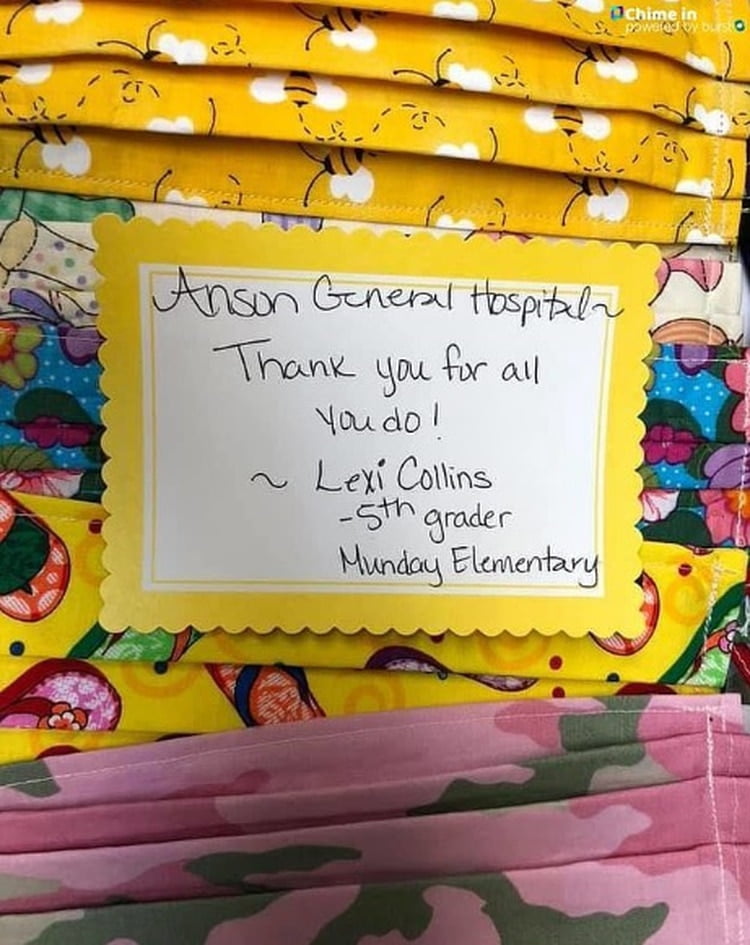 Chime in
powered by burst
Anson General Hospital~
Thank you for all
you do!
~ Lexi Collins
-5th grader
Munday Elementary